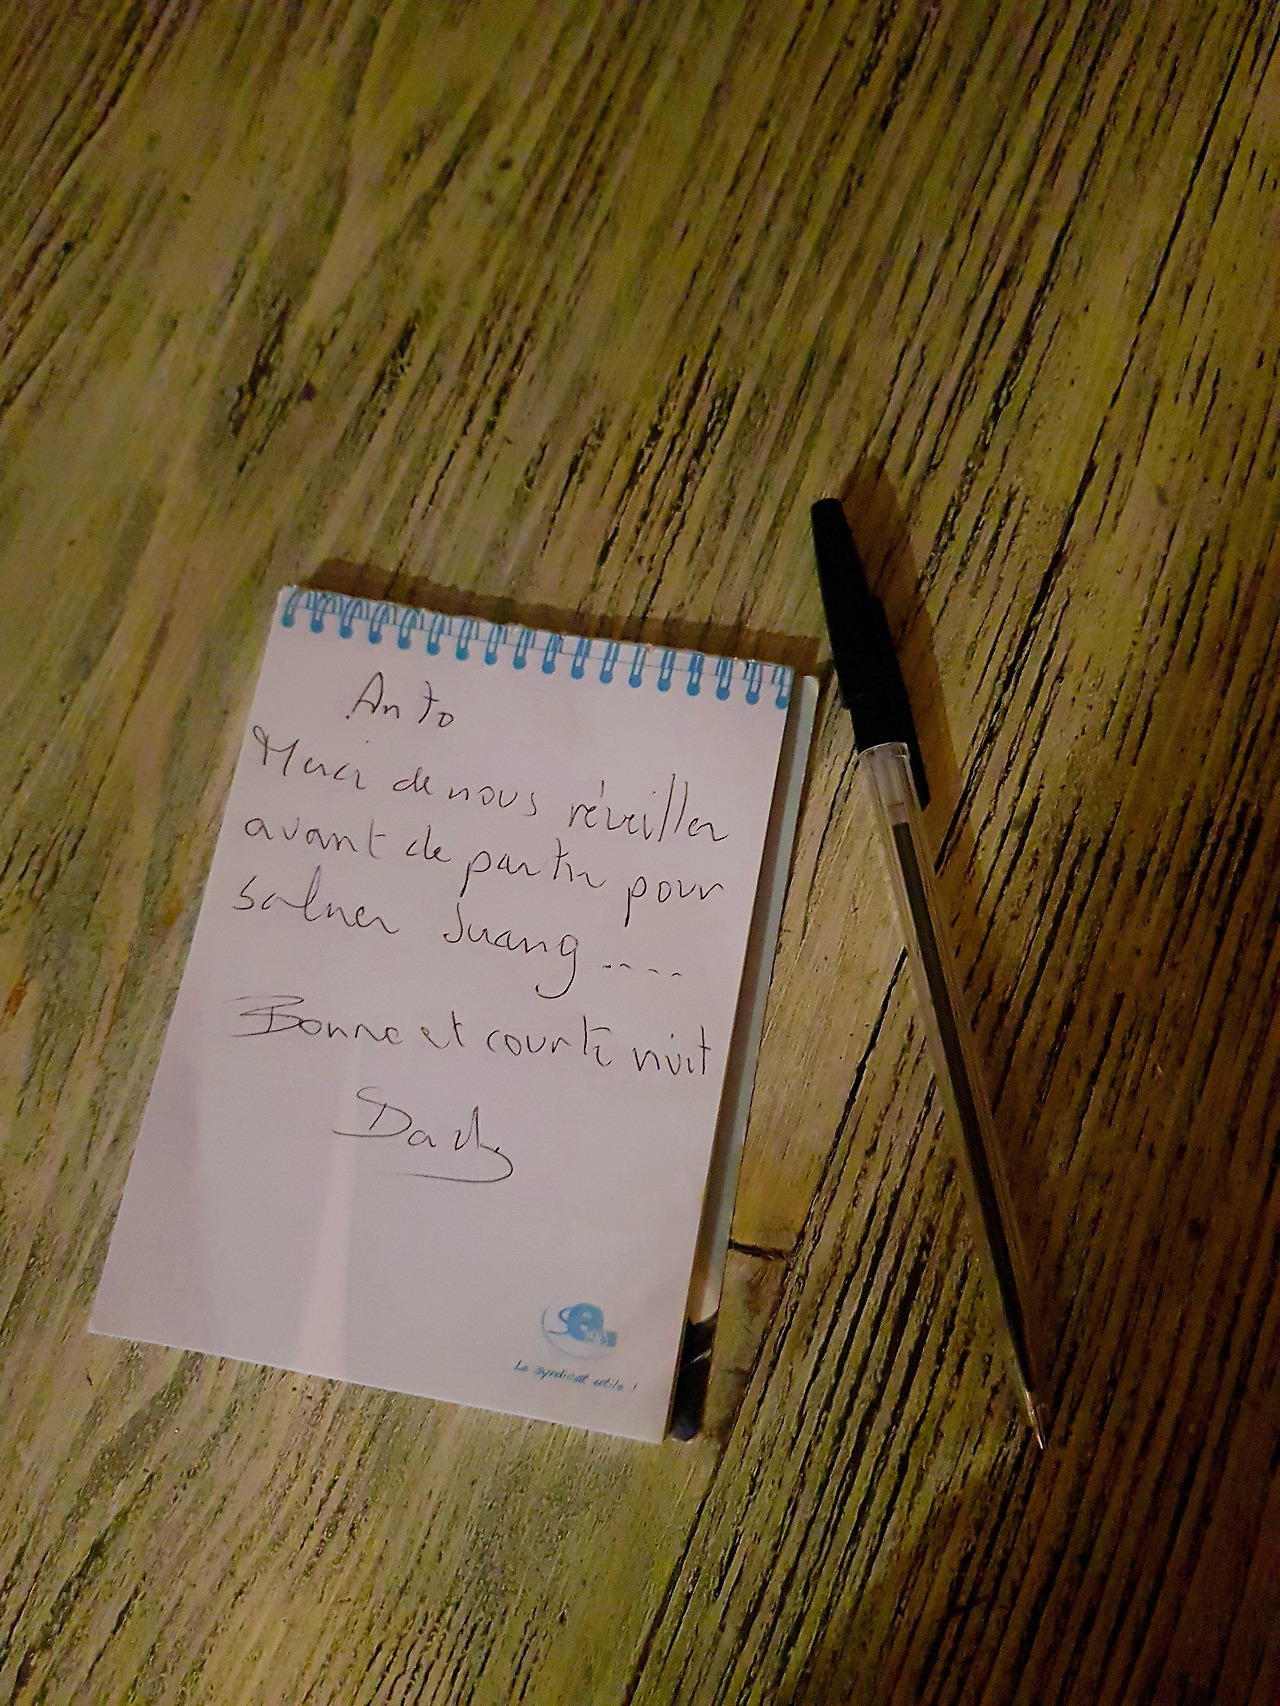 Anto
Merci de nous réveiller
avant de partir pour
saluer Juang ....
Bonne et courte nuit
Se
Le syndicat utile !